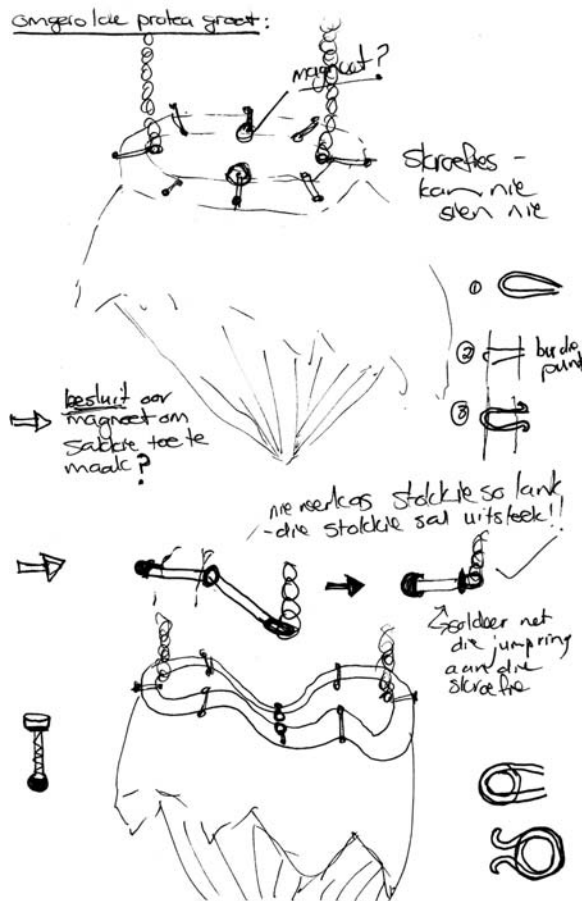 omgerolde protea groot:
magneet?
skroefies -
kan nie
sien nie
①
② punt
③
besluit oor
magneet om
sakkie toe te
maak?
nie stokkie so lank
- die stokkie sal uitsteek!!
soldeer net
die jumpring
aan die
skroefie